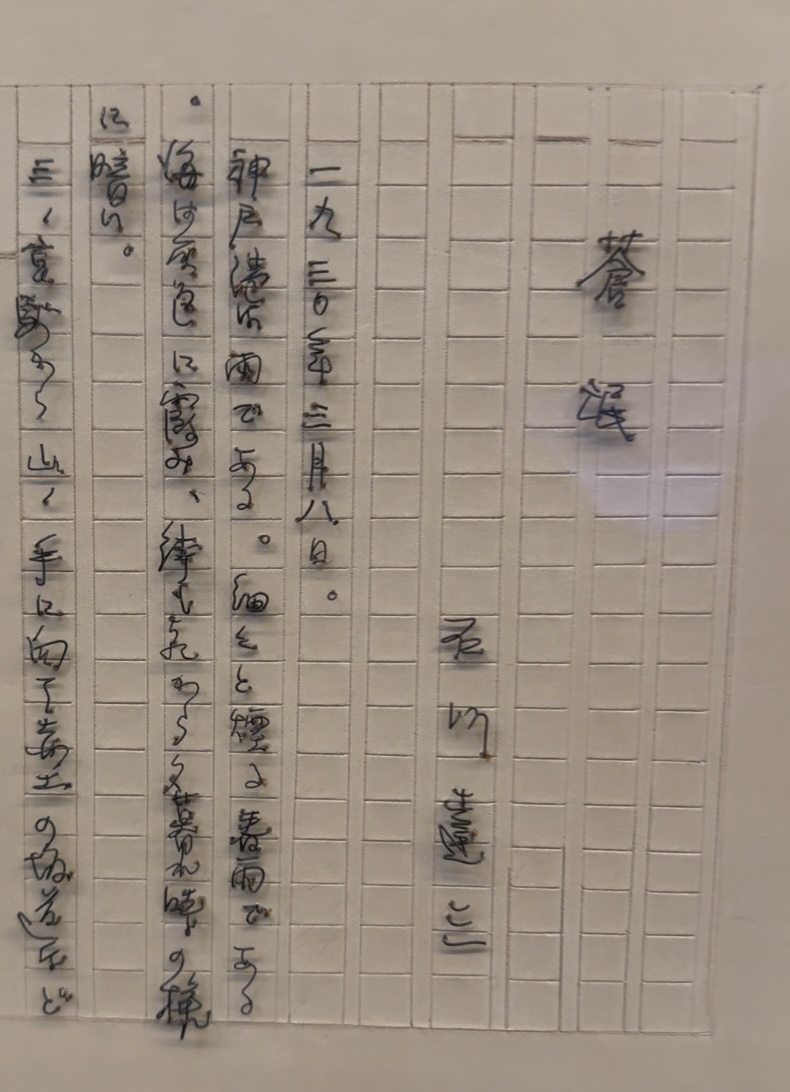 蒼氓
石川達三
一九三〇年三月八日。
神戸港は雨である。細々と煙る春雨である
。海は灰色に霞み、街も朝から夕暮れ時の様
に暗い。
三ノ宮駅から山ノ手に向う赤土の坂道はど